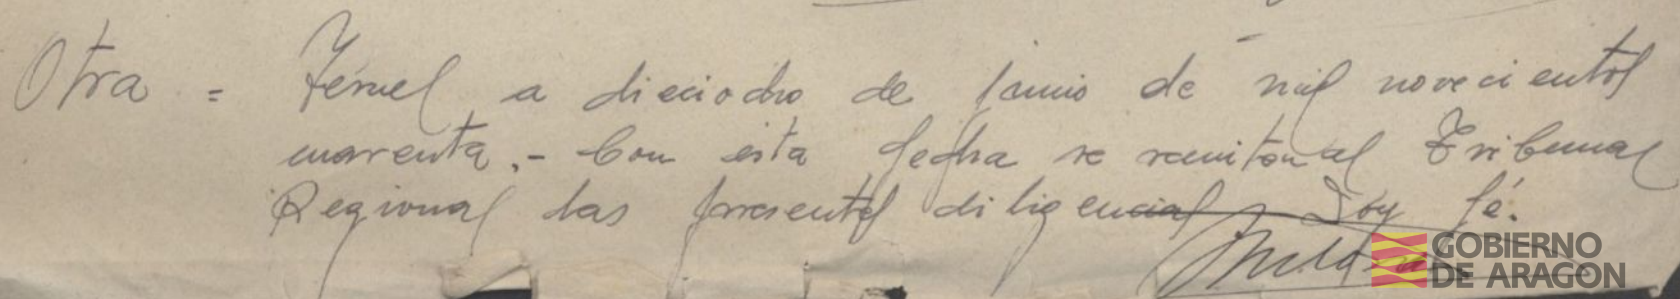 Otra = Teruel a dieciocho de junio de mil novecientos
cuarenta.- Con esta fecha se remiten al Tribunal
Regional las presentes diligencias, Doy fé.
GOBIERNO
DE ARAGON